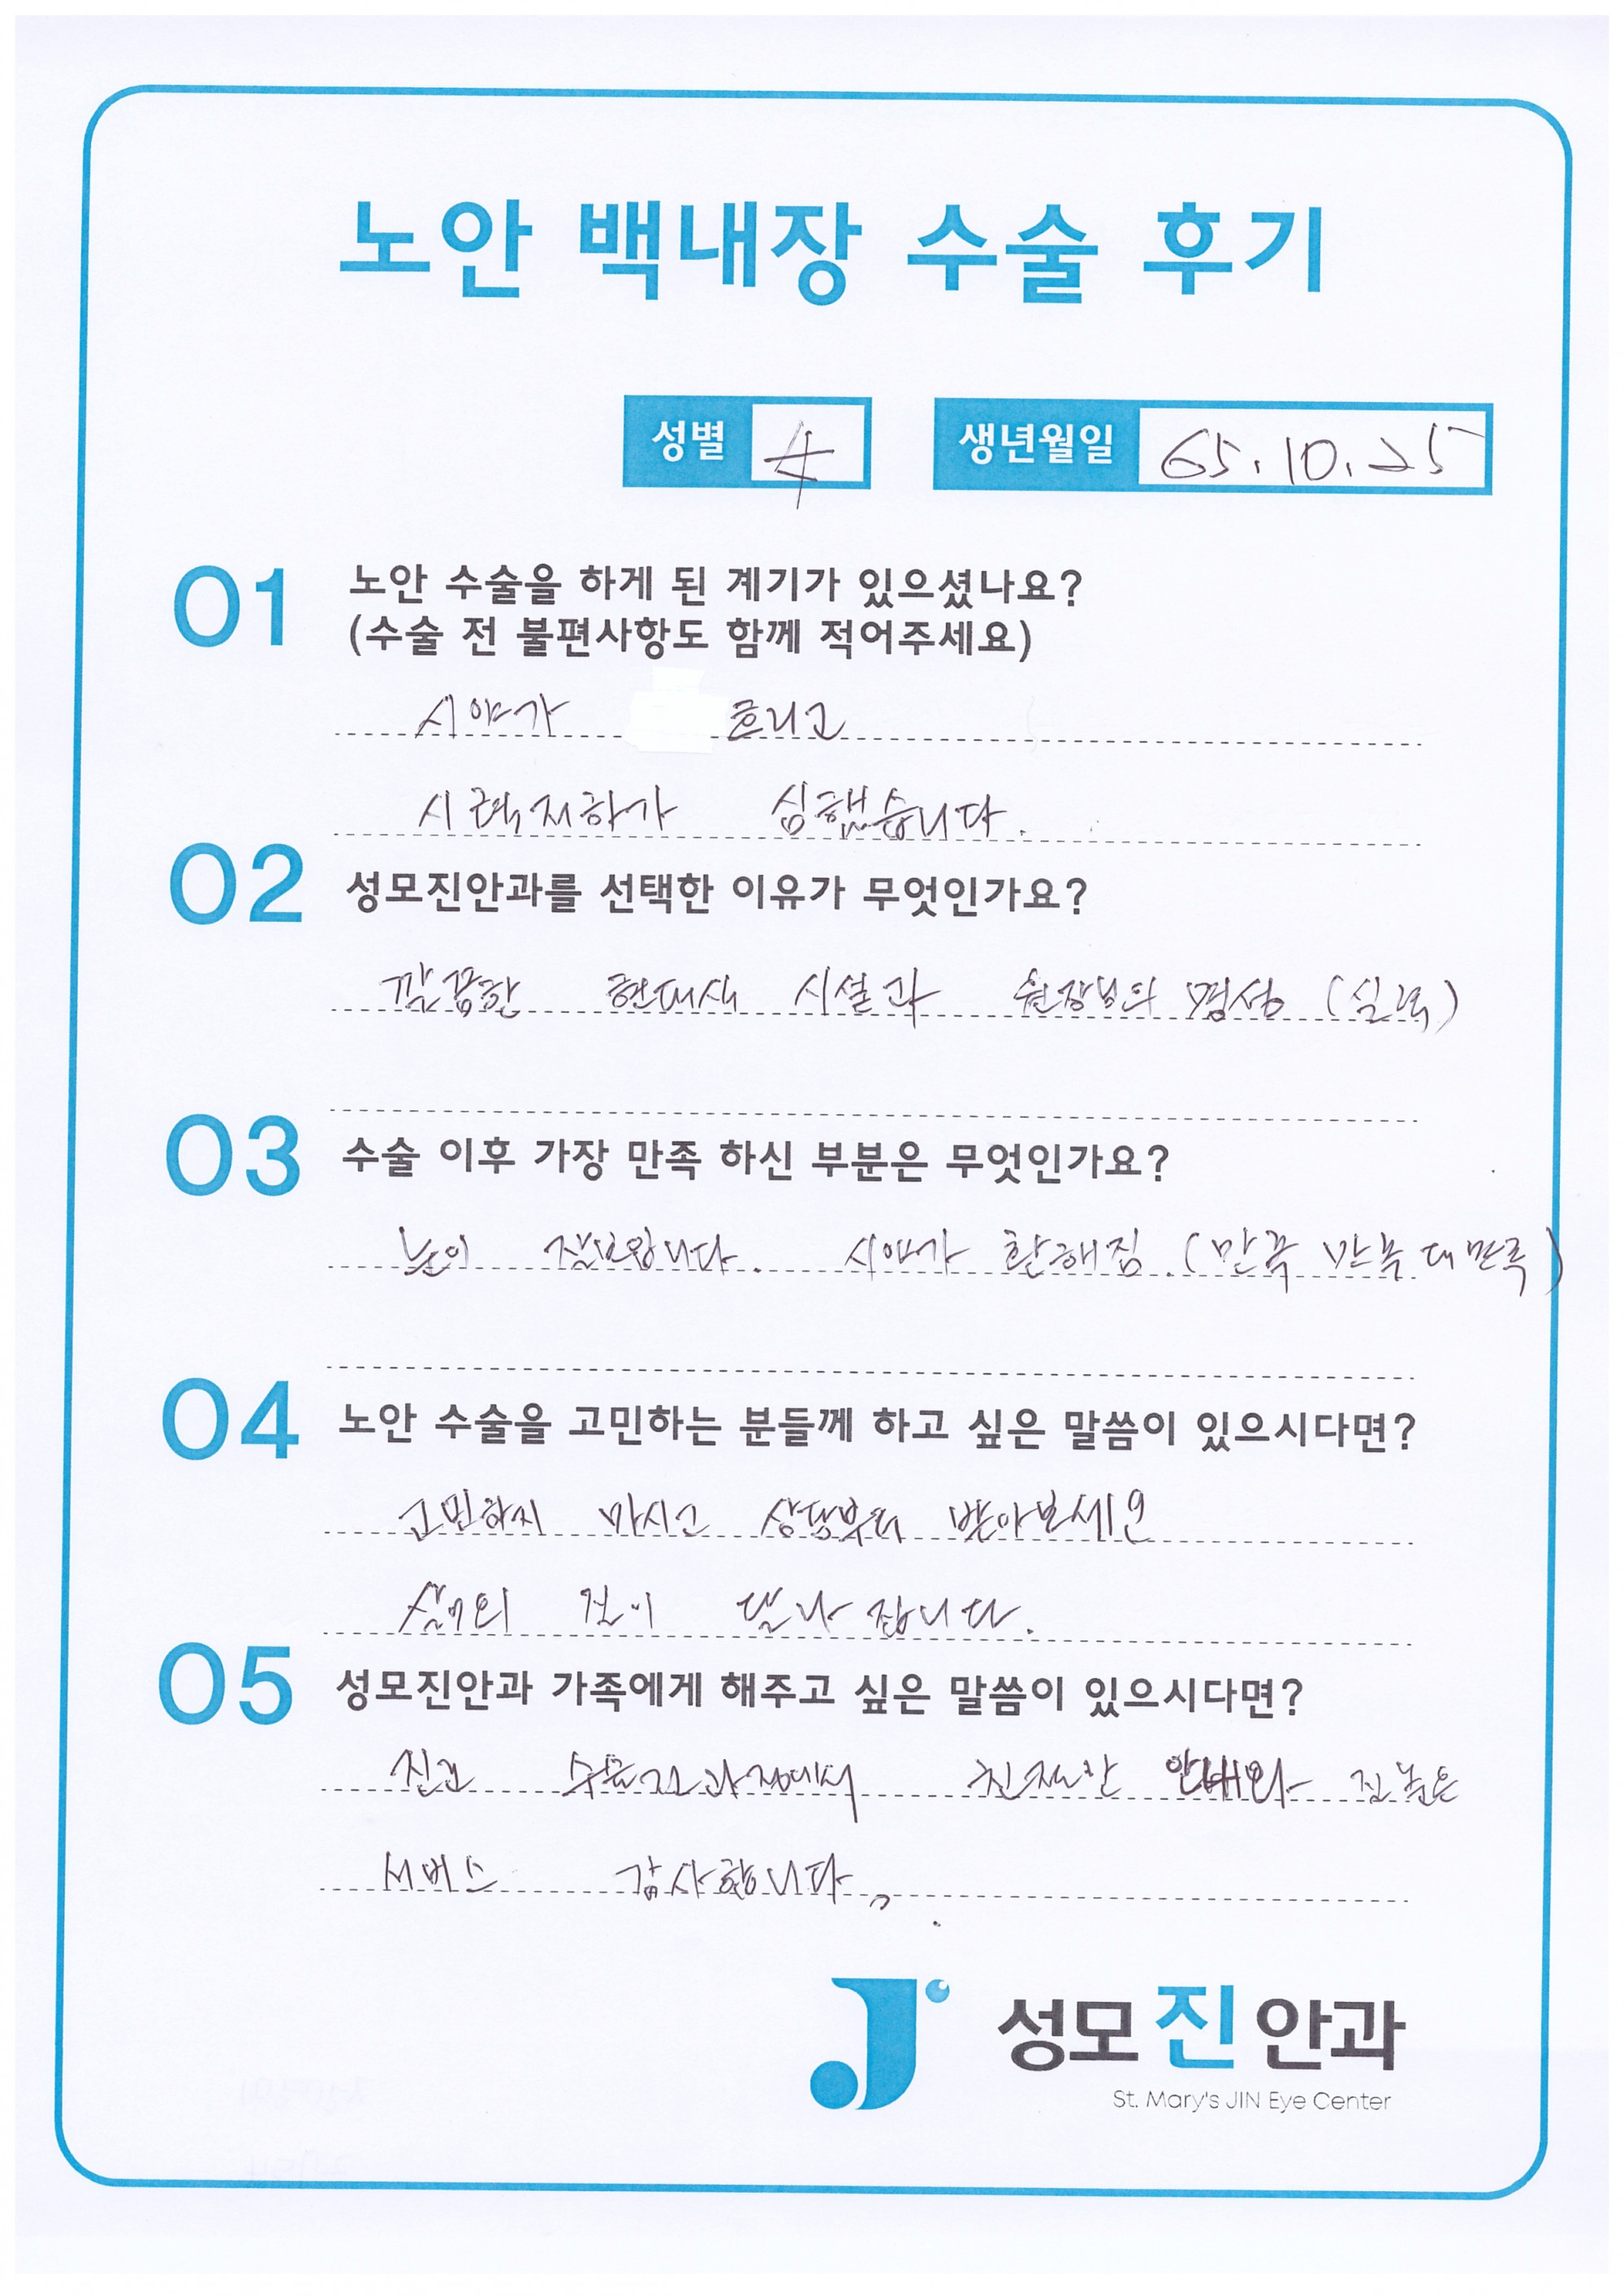 노안 백내장 수술 후기
성별 수 생년월일 65.10.25
01 노안 수술을 하게 된 계기가 있으셨나요?
(수술 전 불편사항도 함께 적어주세요)
시야가 흐리고
시력저하가 심했습니다.
02 성모진안과를 선택한 이유가 무엇인가요?
깔끔한 현대식 시설과 원장님의 명성 (실력)
03 수술 이후 가장 만족 하신 부분은 무엇인가요?
눈이 잘보입니다. 시야가 환해짐. (만족 만족 대만족)
04 노안 수술을 고민하는 분들께 하고 싶은 말씀이 있으시다면?
고민하지 마시고 상담부터 받아보세요
삶의 질이 달라집니다.
05 성모진안과 가족에게 해주고 싶은 말씀이 있으시다면?
진료 수술전과정에서 친절한 안내와 질높은
서비스 감사합니다.
성모진안과
St. Mary's JIN Eye Center